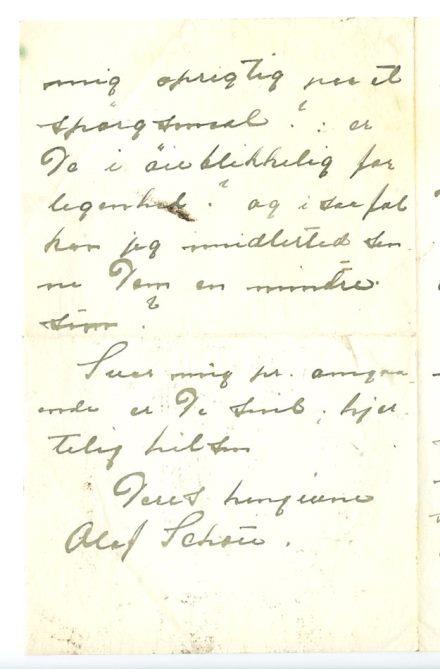 mig oprigtig paa et
spørgsmaal? : er
De i øieblikkelig for
legenhed? og i saa fal
kan jeg midlertid sen
me Dem en mindre
sum?
Svar mig pr. omgaa
ende er De snil, hjer
telig hilsen
Deres hengivne
Olaf Schou.